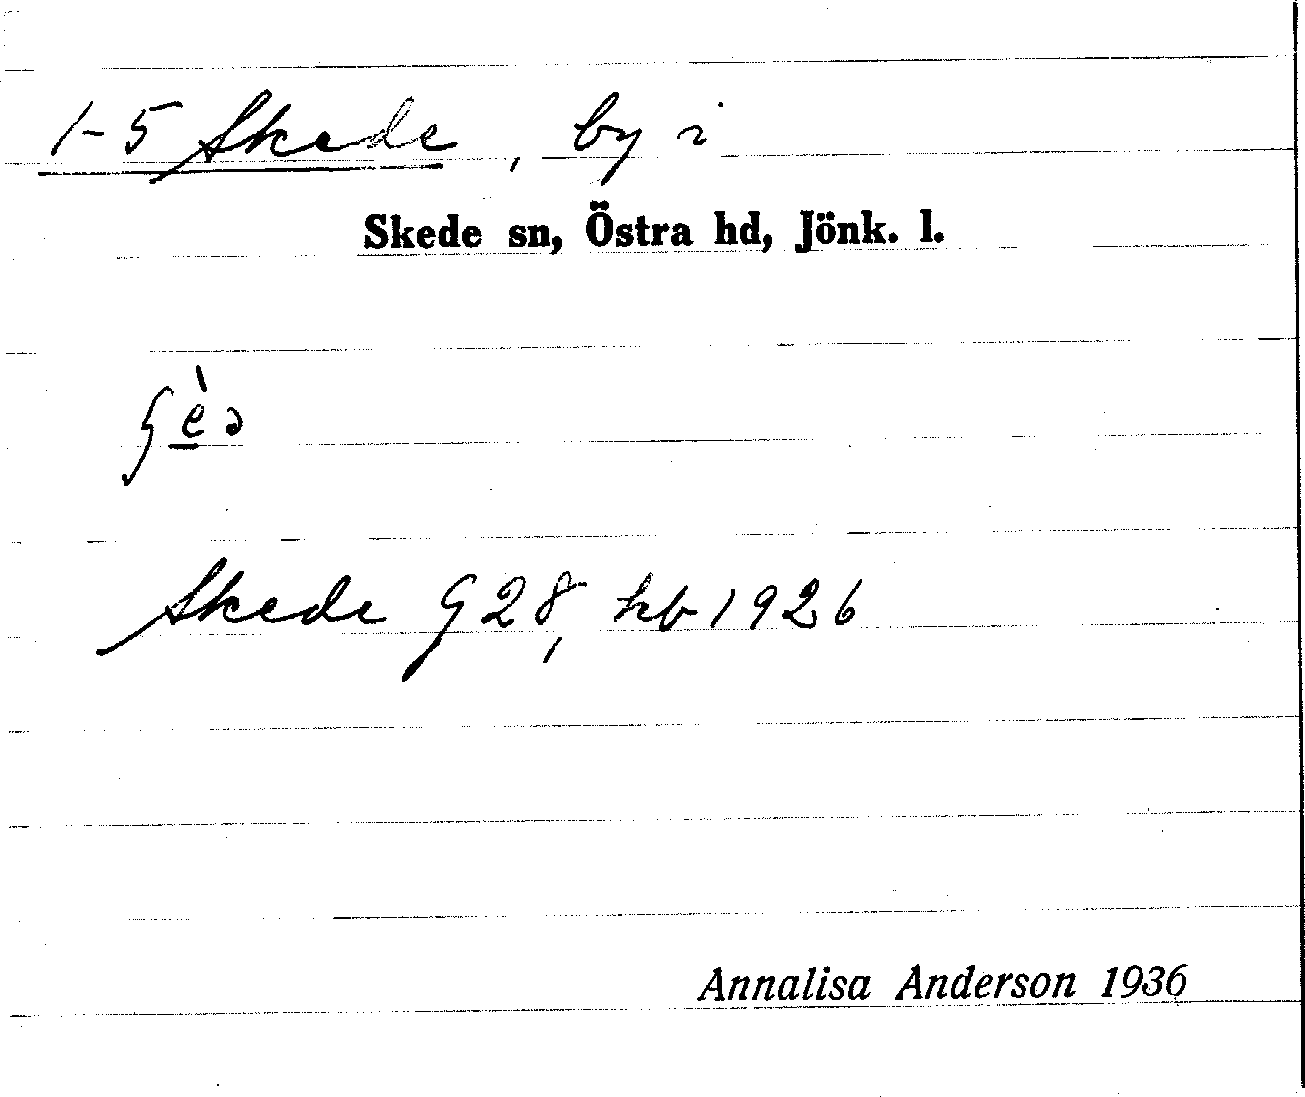 1-5 Skede, by i
Skede sn, Östra hd, Jönk. l.
ʃè̱ə
Skede G28, hb 1926
Annalisa Anderson 1936